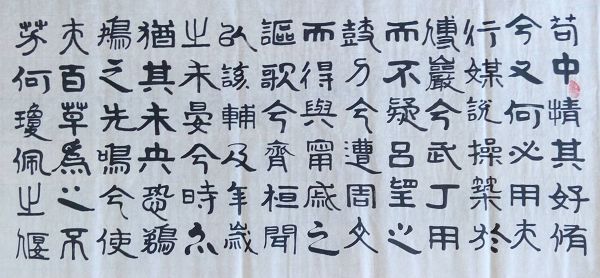 苟中情其好脩
兮又何必用夫
行媒說操築於
傅巖兮武丁用
而不疑呂望之
鼓刀兮遭周文
而得與甯戚之
謳歌兮齊桓聞
以該輔及年歲
之未晏兮時亦
猶其未央恐鵜
鴂之先鳴兮使
夫百草為之不
芳何瓊佩之偃